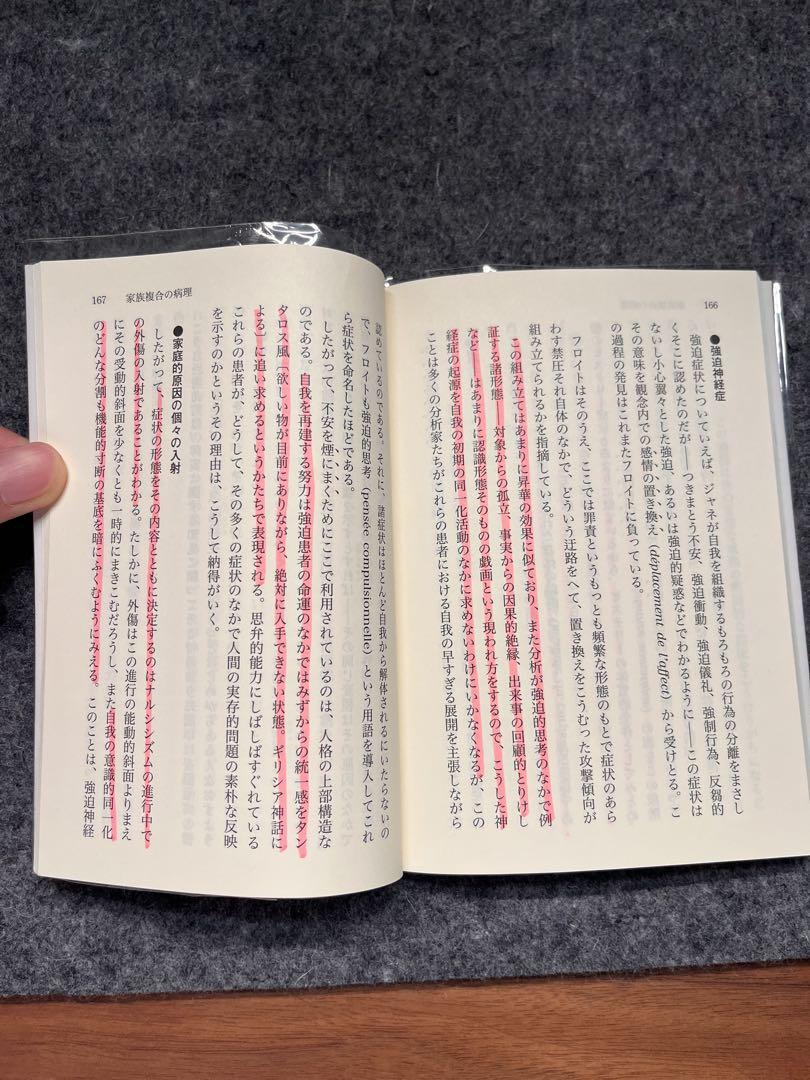 166
●強迫神経症
強迫症状についていえば、ジャネが自我を組織するもろもろの行為の分離をまさし
くそこに認めたのだが——つきまとう不安、強迫衝動、強迫儀礼、強制行為、反芻的
ないし小心翼々とした強迫、あるいは強迫的疑惑などでわかるように——この症状は
その意味を観念内での感情の置き換え (déplacement de l'affect) から受けとる。こ
の過程の発見はこれまたフロイトに負っている。
フロイトはそのうえ、ここでは罪責というもっとも頻繁な形態のもとで症状のあら
わす禁圧それ自体のなかで、どういう迂路をへて、置き換えをこうむった攻撃傾向が
組み立てられるかを指摘している。
この組み立てはあまりに昇華の効果に似ており、また分析が強迫的思考のなかで例
証する諸形態——対象からの孤立、事実からの因果的絶縁、出来事の回顧的とりけし
など——はあまりに認識形態そのものの戯画という現われ方をするので、こうした神
経症の起源を自我の初期の同一化活動のなかに求めないわけにいかなくなるが、この
ことは多くの分析家たちがこれらの患者における自我の早すぎる展開を主張しながら
167 家族複合の病理
認めているのである。それに、諸症状はほとんど自我から解体されるにいたらないの
で、フロイトも強迫的思考 (pensée compulsionnelle) という用語を導入してこれ
ら症状を命名したほどである。
したがって、不安を煙にまくためにここで利用されているのは、人格の上部構造な
のである。自我を再建する努力は強迫患者の命運のなかではみずからの統一感をタン
タロス風〔欲しい物が目前にありながら、絶対に入手できない状態。ギリシア神話に
よる〕に追い求めるというかたちで表現される。思弁的能力にしばしばすぐれている
これらの患者が、どうして、その多くの症状のなかで人間の実存的問題の素朴な反映
を示すのかというその理由は、こうして納得がいく。
●家庭的原因の個々の入射
したがって、症状の形態をその内容とともに決定するのはナルシシズムの進行中で
の外傷の入射であることがわかる。たしかに、外傷はこの進行の能動的斜面よりまえ
にその受動的斜面を少なくとも一時的にまきこむだろうし、また自我の意識的同一化
のどんな分割も機能的寸断の基底を暗にふくむようにみえる。このことは、強迫神経